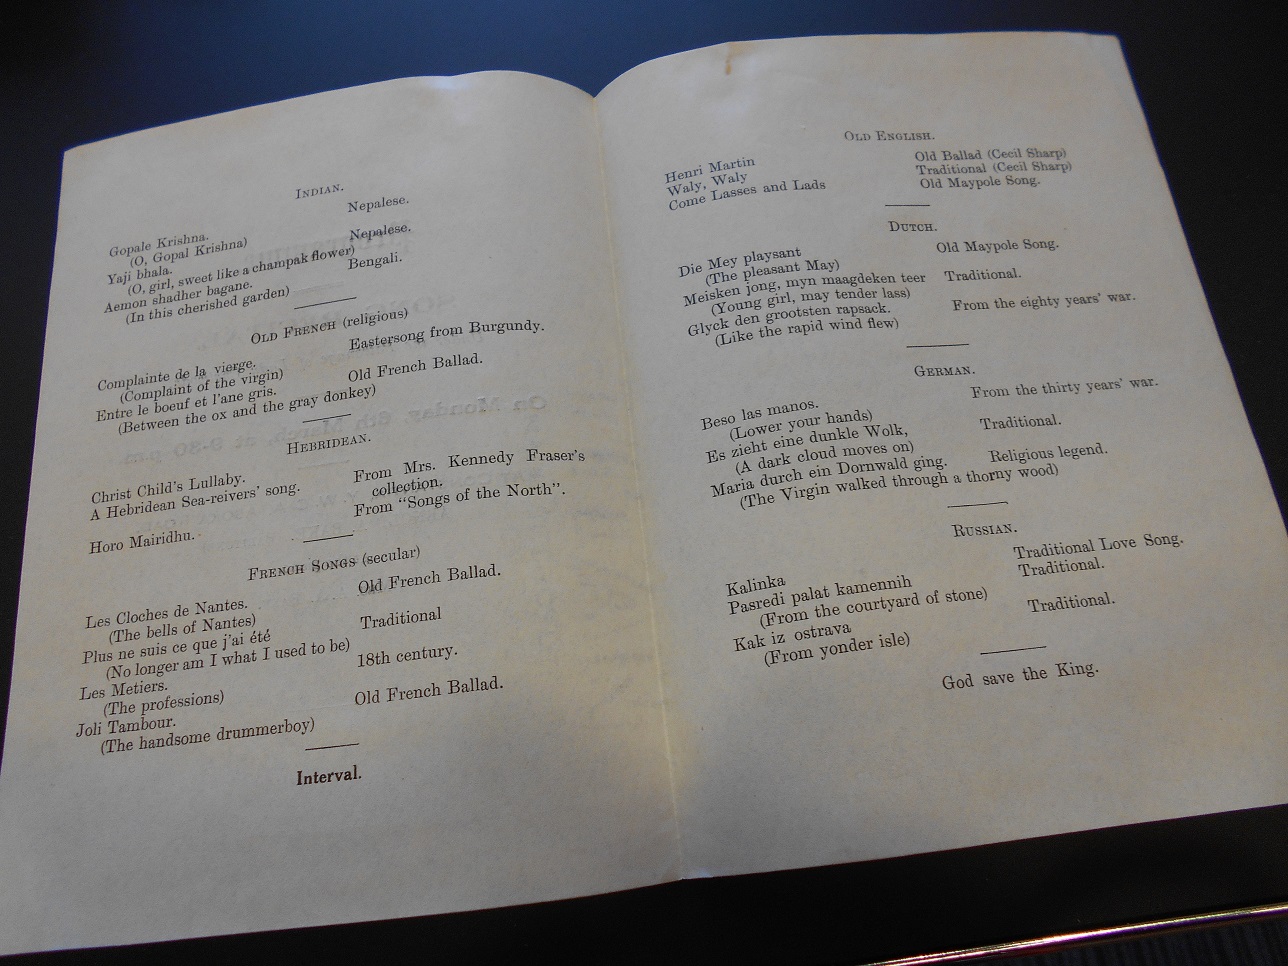 INDIAN.
Nepalese.
Gopale Krishna.
(O, Gopal Krishna)
Nepalese.
Yaji bhala.
(O, girl, sweet like a champak flower)
Bengali.
Aemon shadher bagane.
(In this cherished garden)
OLD FRENCH (religious)
Eastersong from Burgundy.
Complainte de la vierge.
(Complaint of the virgin)
Old French Ballad.
Entre le boeuf et l'ane gris.
(Between the ox and the gray donkey)
HEBRIDEAN.
Christ Child's Lullaby.
From Mrs. Kennedy Fraser's
A Hebridean Sea-reivers' song.
collection.
From "Songs of the North".
Horo Mairidhu.
FRENCH SONGS (secular)
Old French Ballad.
Les Cloches de Nantes.
(The bells of Nantes)
Traditional
Plus ne suis ce que j'ai été
(No longer am I what I used to be)
18th century.
Les Metiers.
(The professions)
Old French Ballad.
Joli Tambour.
(The handsome drummerboy)
Interval.
OLD ENGLISH.
Henri Martin Old Ballad (Cecil Sharp)
Waly, Waly Traditional (Cecil Sharp)
Come Lasses and Lads Old Maypole Song.
DUTCH.
Die Mey playsant Old Maypole Song.
(The pleasant May)
Meisken jong, myn maagdeken teer Traditional.
(Young girl, may tender lass)
Glyck den grootsten rapsack. From the eighty years' war.
(Like the rapid wind flew)
GERMAN.
From the thirty years' war.
Beso las manos.
(Lower your hands)
Es zieht eine dunkle Wolk, Traditional.
(A dark cloud moves on)
Maria durch ein Dornwald ging. Religious legend.
(The Virgin walked through a thorny wood)
RUSSIAN.
Kalinka Traditional Love Song.
Pasredi palat kamennih Traditional.
(From the courtyard of stone)
Kak iz ostrava Traditional.
(From yonder isle)
God save the King.